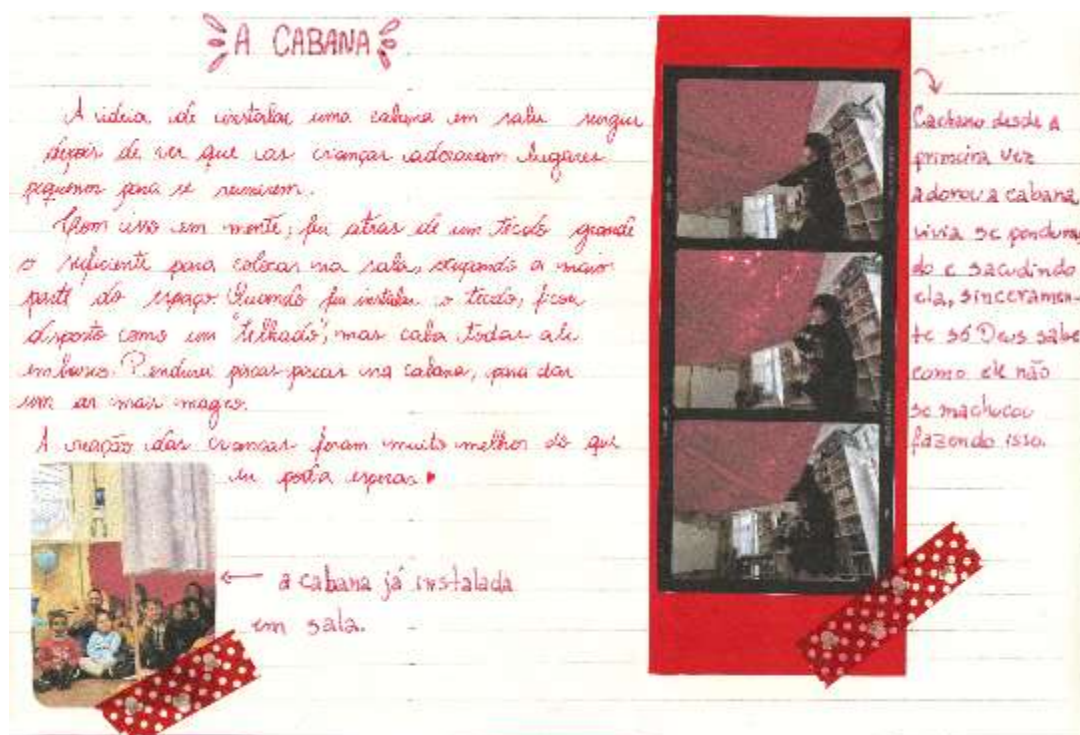 A CABANA
A ideia de instalar uma cabana em sala surgiu
depois de ver que as crianças adoravam lugares
pequenos para se reunirem.
Com isso em mente, fui atras de um tecido grande
o suficiente para colocar na sala, ocupando a maior
parte do espaço. Quando fui instalar o tecido, ficou
disposto como um "telhado", mas cabia todas ali
embaixo. Pendurei piscas piscas na cabana, para dar
um ar mais magico.
A reação das crianças foram muito melhor do que
eu podia esperar.
a cabana já instalada
em sala.
Caetano desde a
primeira vez
adorou a cabana,
vivia se penduran
do e sacudindo
ela, sinceramen-
te só Deus sabe
como ele não
se machucou
fazendo isso.